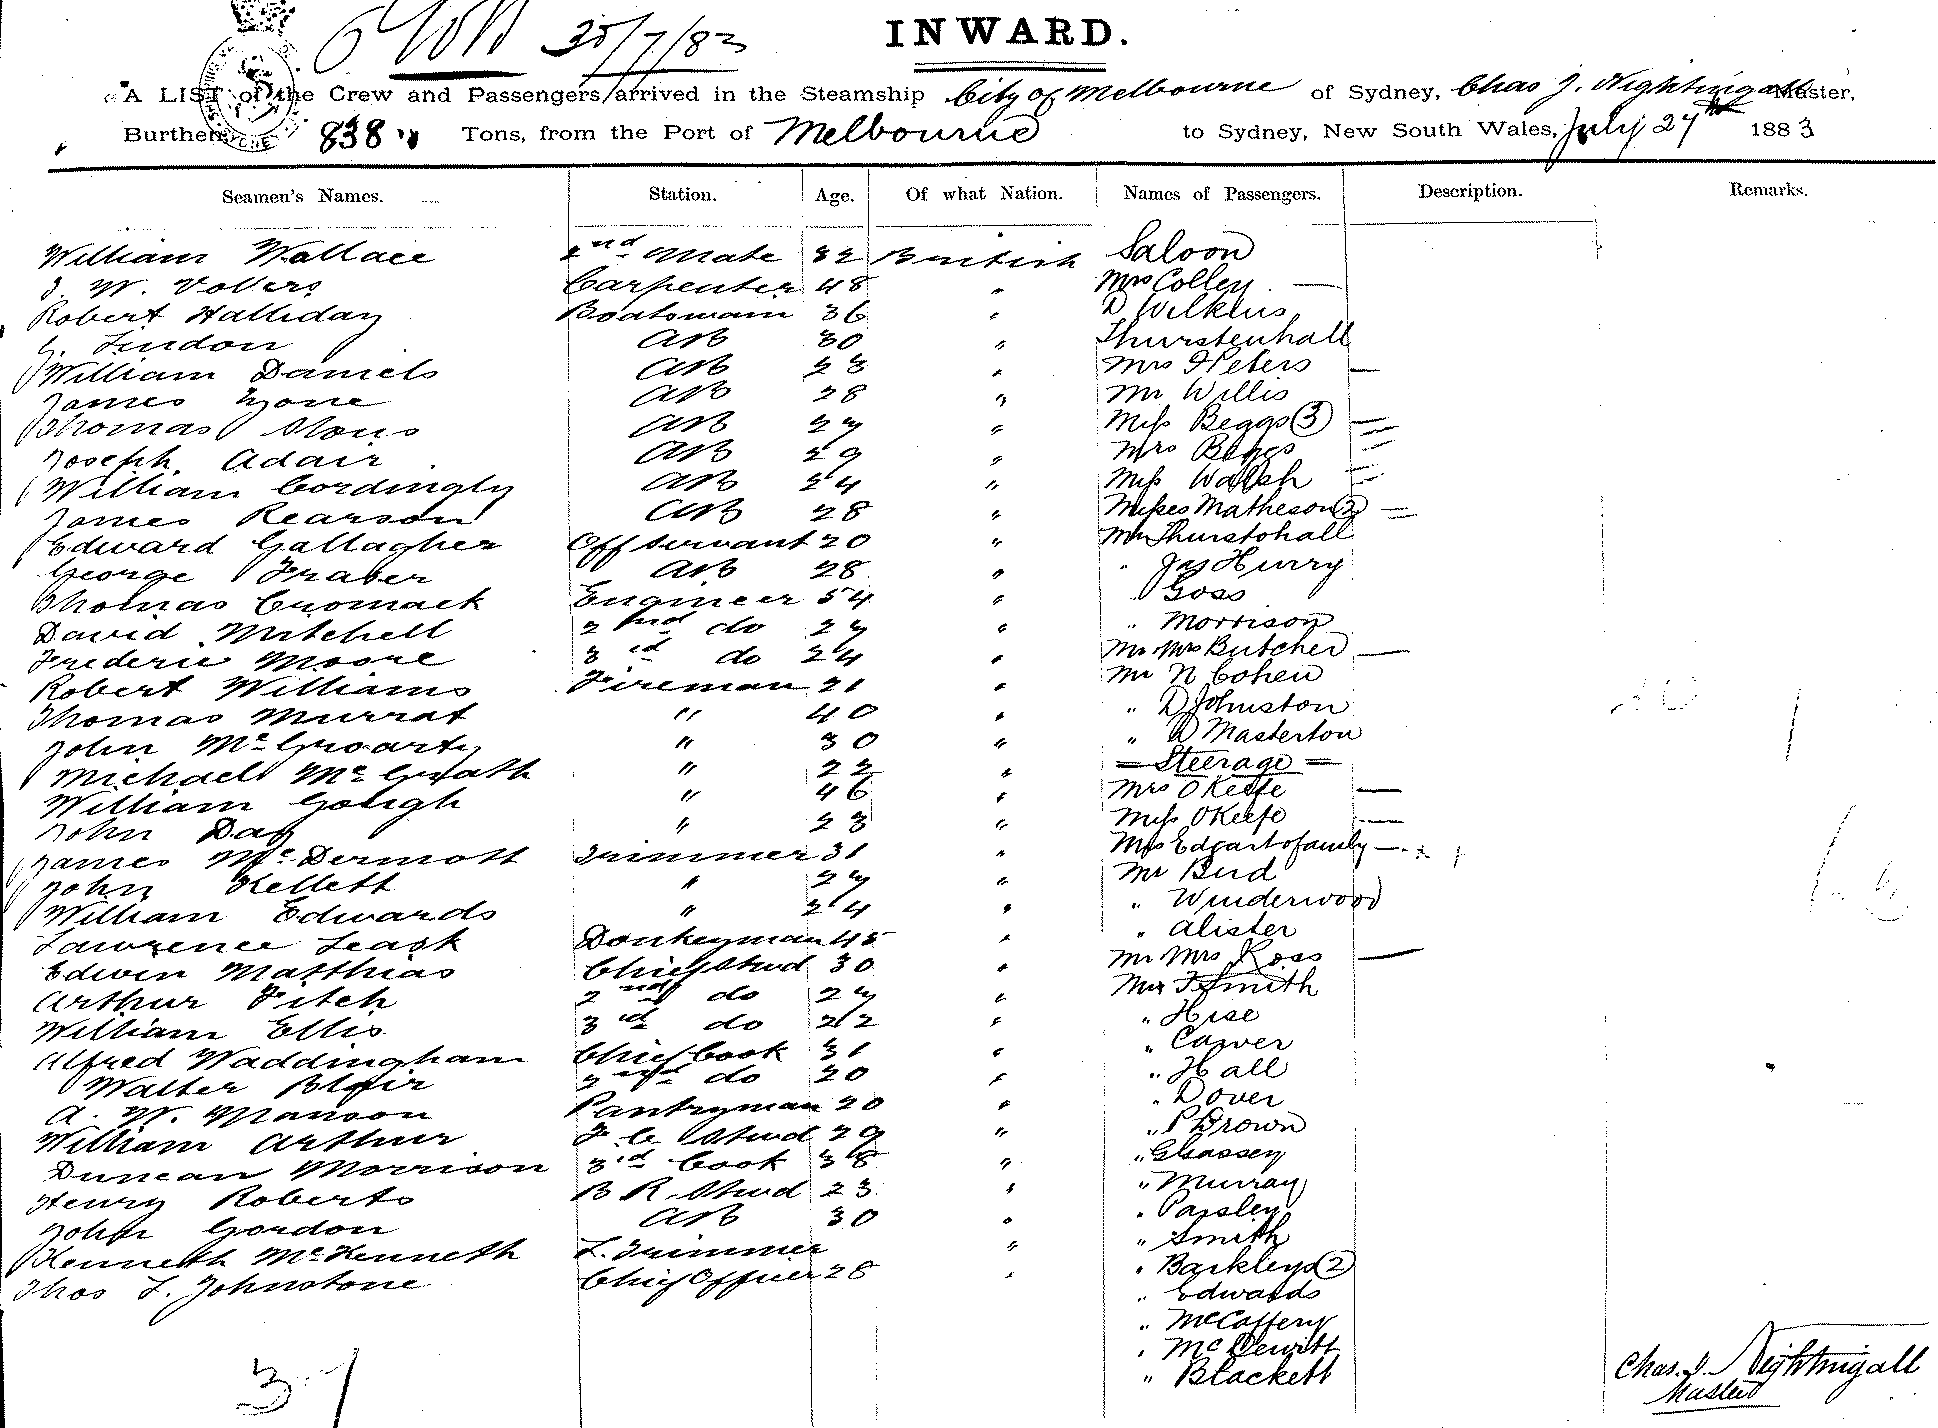 35/7/83
INWARD.
A LIST of the Crew and Passengers arrived in the Steamship City of Melbourne of Sydney, Chas J. Nightingall Master,
Burthen 838 Tons, from the Port of Melbourne to Sydney, New South Wales, July 27th 1883
Seamen's Names. Station. Age. Of what Nation. Names of Passengers. Description. Remarks.
William Wallace 2nd Mate 32 British Saloon
J. W. Vollers Carpenter 48 " Mrs Colley —
Robert Halliday Boatswain 36 " D Wilkins
Lindon AB 30 " Thurstenhall
William Daniels AB 23 " Mrs Peters —
James AB 28 " Mr Willis
Thomas AB 27 " Miss Beggs (3) —
Joseph Adair AB 29 " Mrs Beggs
William Cordingly AB 24 " Miss Walsh
James Rearson AB 28 " Misses Matheson (2) —
Edward Gallagher Off servant 20 " Mr Thurstohall
George Fraser AB 28 " " Jas Hurry
Thomas Cromack Engineer 54 " " Goss
David Mitchell 2nd do 27 " " Morrison
Frederic Moore 3rd do 24 " Mr Mrs Butcher —
Robert Williams Fireman 21 " Mr N Cohen
Thomas Murrat " 40 " " D Johnston
John McGroarty " 30 " " D Masterton
Michael McGrath " 22 " = Steerage =
William Gough " 46 " Mrs O Keefe —
John Day " 23 " Miss O Keefe —
James McDermott Trimmer 31 " Mrs family —
John Kellett " 27 " Mr Bird
William Edwards " 24 " " Winderwood
Lawrence Leask Donkeyman 45 " " Alister
Edwin Matthias Chief Stwd 30 " Mr Mrs Ross —
Arthur Fitch 2nd do 27 " Mr F Smith
William Ellis 3rd do 22 " " Hise
Alfred Waddingham Chief Cook 31 " " Carver
Walter Blair 2nd do 20 " " Hall
A. W. Manson Pantryman 20 " " Dover
William Arthur F. C. Stwd 29 " " P Brown
Duncan Morrison 3rd Cook 38 " " Glassey
Henry Roberts B R. Stwd 23 " " Murray
John Gordon AB 30 " " Paisley
Kenneth McKenneth L. Trimmer " " Smith
Thos L. Johnstone Chief Officer 28 " " Barkleys (2)
" Edwards
" McCaffery
" McDewitt
" Blackett
37
Chas. J. Nightingall
Master